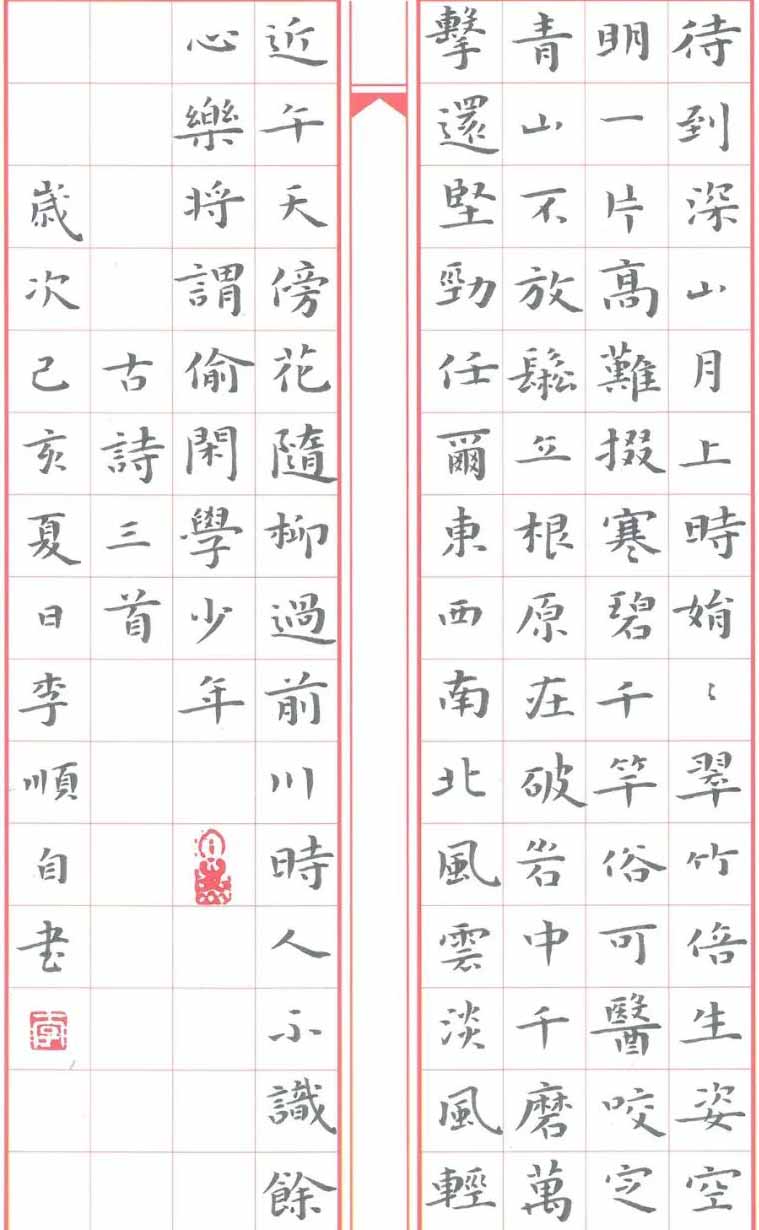 待到深山月上時娟〻翠竹倍生姿空
明一片高難掇寒碧千竿俗可醫咬定
青山不放鬆立根原在破岩中千磨萬
擊還堅勁任爾東西南北風雲淡風輕
近午天傍花隨柳過前川時人不識餘
心樂将謂偷閑學少年
古詩三首
歲次己亥夏日李順自書